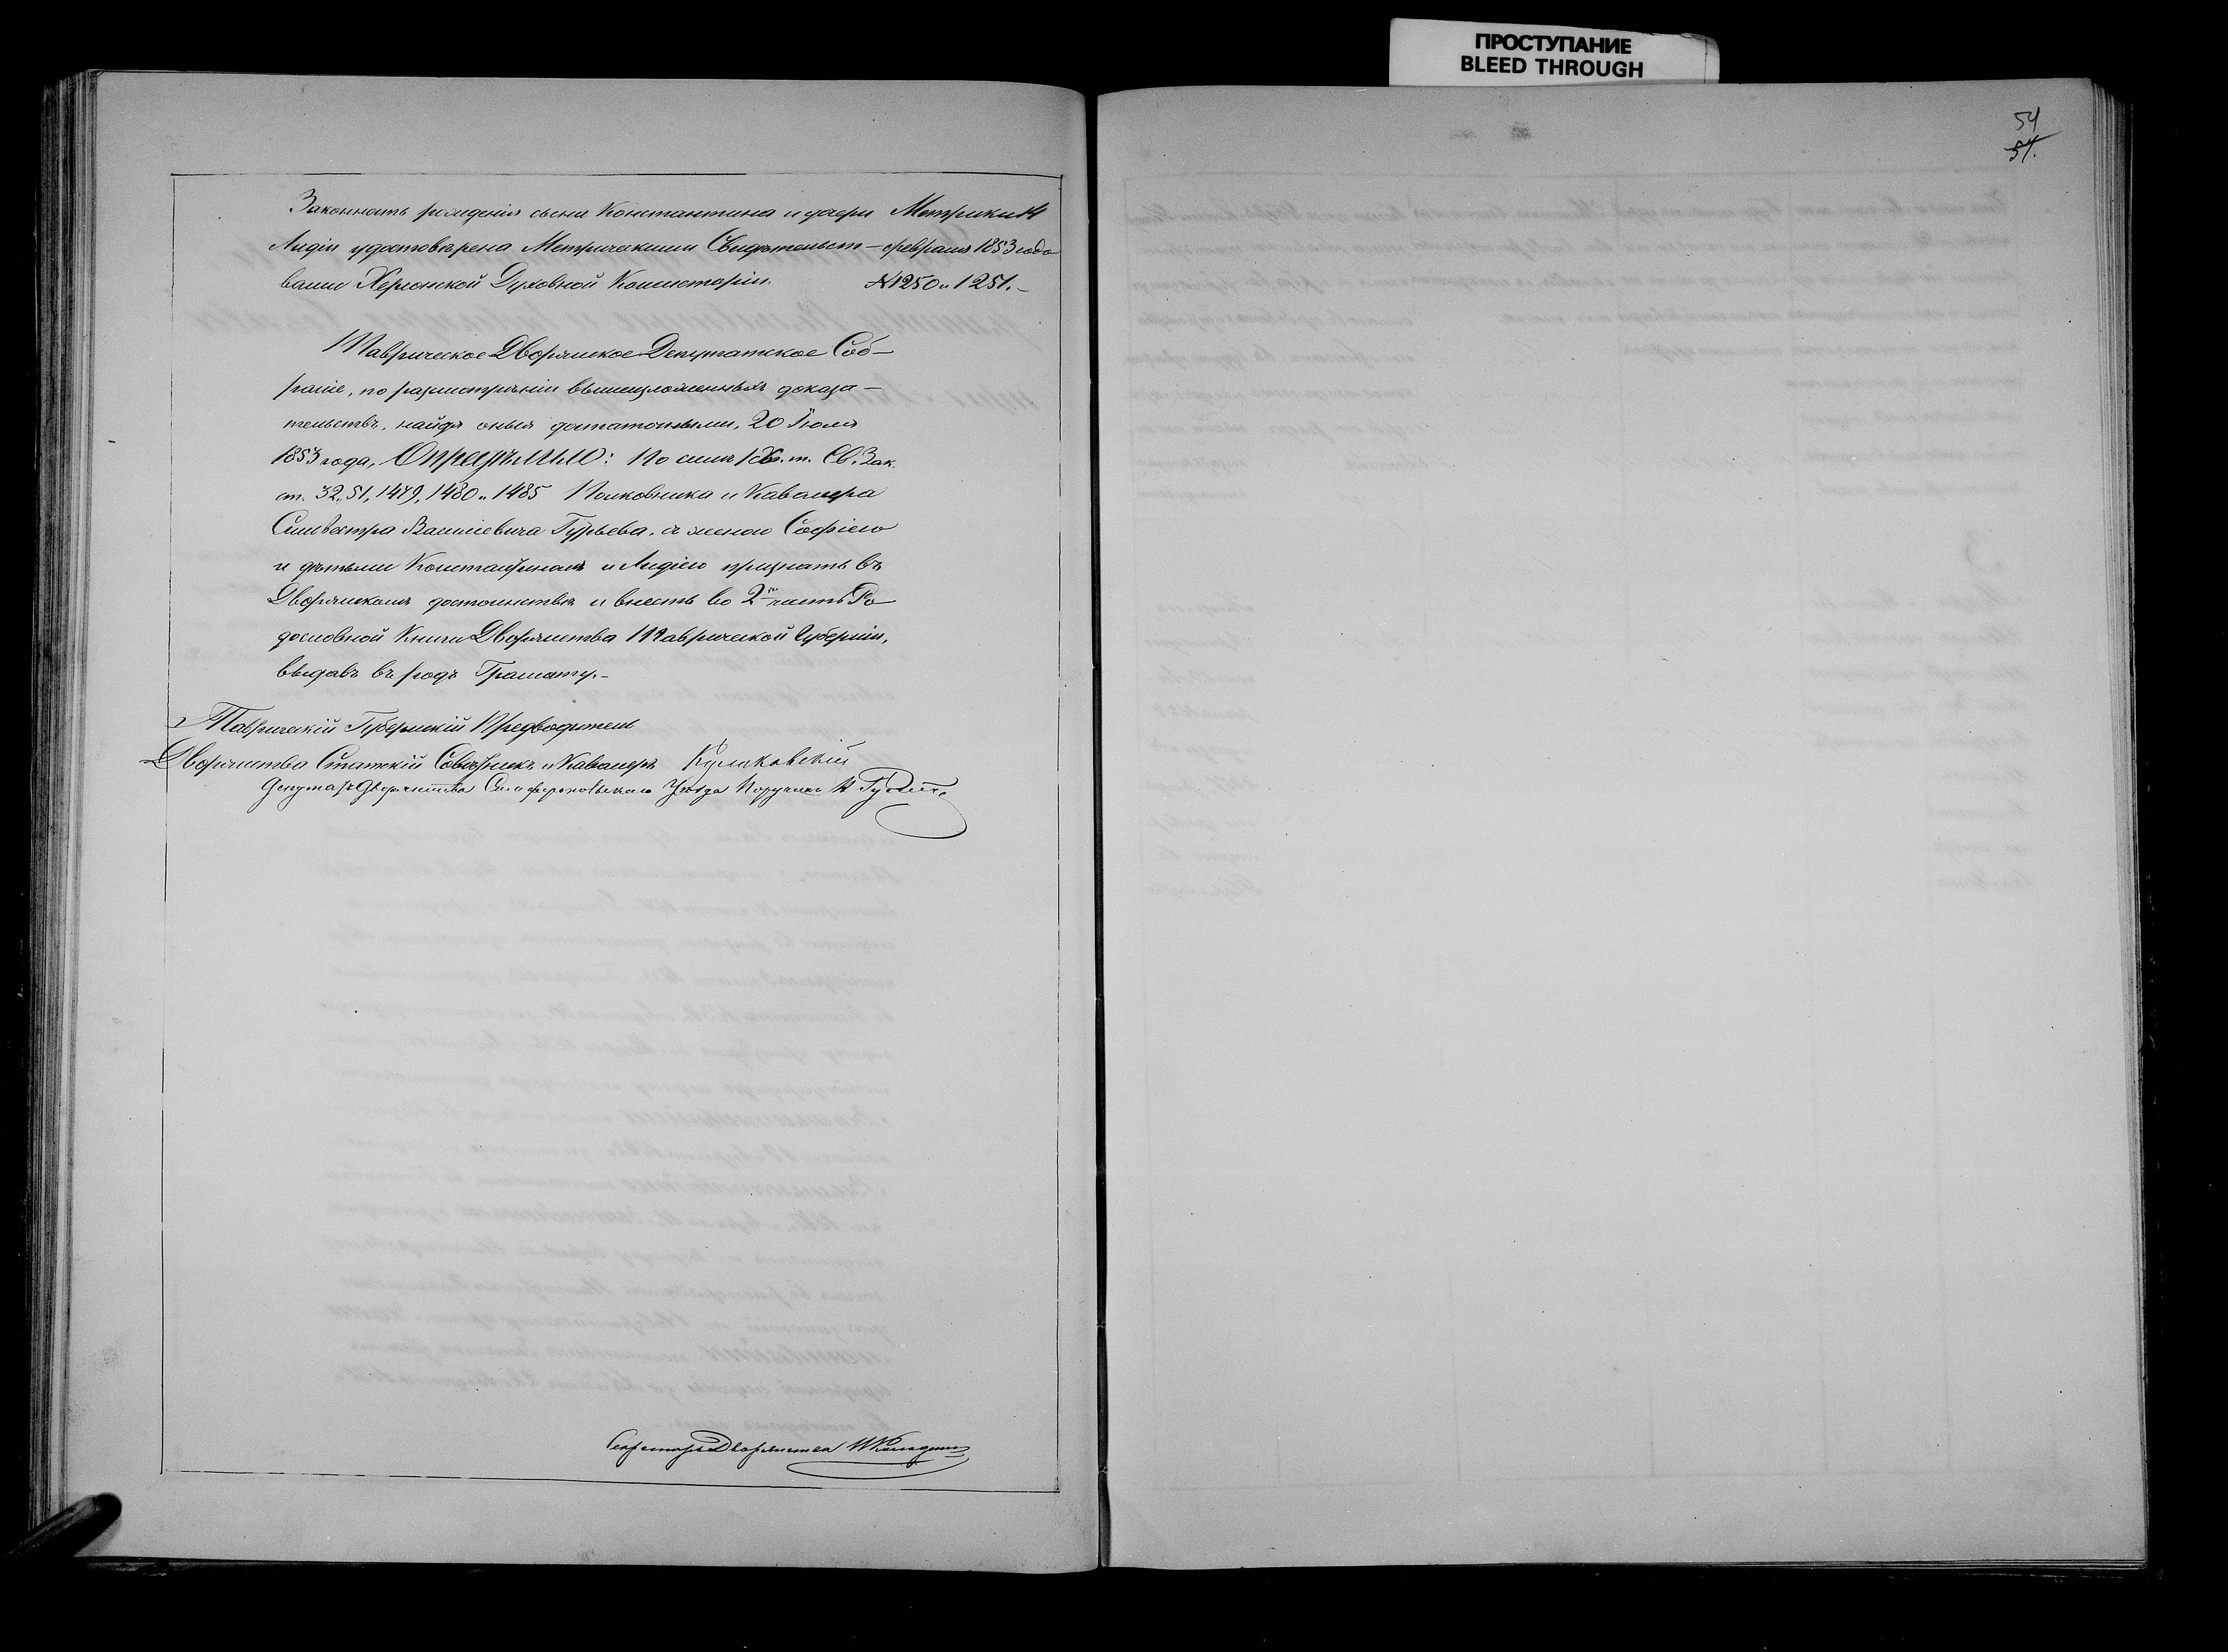 ПРОСТУПАНИЕ
BLEED THROUGH
54
54.
Законность рожденія сына Константина и дочери
Лидіи удостовѣрена Метрическими Свидѣтельст-
вами Херсонской Духовной Консисторіи.
Метрики 14
февраля 1853 года
№ 1250 и 1251.-
Таврическое Дворянское Депутатское Соб-
раніе, по разсмотрѣніи вышеизложенныхъ доказа-
тельствъ, найдя оныя достаточными, 20 Іюля
1853 года, Опредѣлило: По силѣ IX. т. Св. Зак.
ст. 32, 51, 1479, 1480 и 1485 Полковника и Кавалера
Сильвестра Васильевича Гурьева, съ женою Софіею
и дѣтьми Константиномъ и Лидіею признать въ
Дворянскомъ достоинствѣ и внесть во 2ю часть Ро
дословной Книги Дворянства Таврической Губерніи,
выдавъ въ родъ Грамату.-
Таврическій Губернскій Предводитель
Дворянства Статскій Совѣтникъ и Кавалеръ Куликовскій
Депутатъ Дворянства Симферопольскаго Уѣзда Поручикъ
Секретарь Дворянства